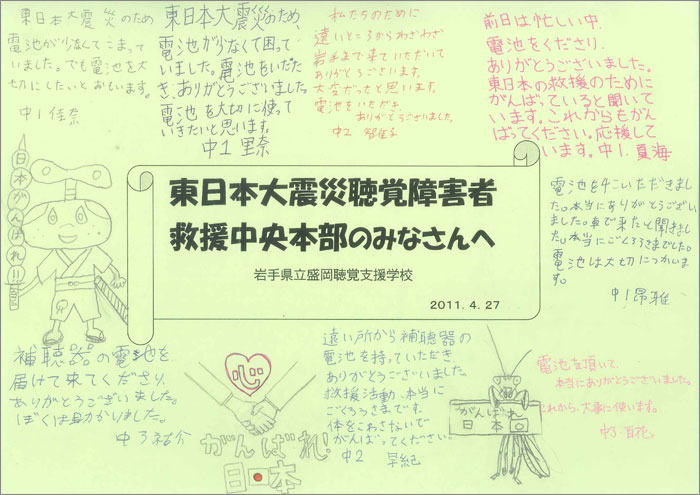 東日本大震災のため
電池が少なくてこまって
いました。でも電池を大
切にしたいとおもいます。
中1 佳奈
東日本大震災のため、
電池が少なくて困って
いました。電池をいただ
き、ありがとうございました。
電池を大切に使って
いきたいと思います。
中1 里奈
私たちのために
遠いところからわざわざ
岩手まで来ていただいて
ありがとうございます。
大変だったと思います。
電池をいただき、
ありがとうございました。
中2
前日は忙しい中、
電池をくださり、
ありがとうございました。
東日本の救援のために
がんばっていると聞いて
います。これからもがん
ばってください。応援して
います。中1.夏海
日本がんばれ!!
東日本大震災聴覚障害者
救援中央本部のみなさんへ
岩手県立盛岡聴覚支援学校
2011.4.27
電池を4こいただきまし
た。本当にありがとうござい
ました。車で来たと聞きまし
た。本当にごくろうさまでした。
電池は大切につかいま
す。
中1 昂雅
補聴器の電池を
届けて来てくださり、
ありがとうございました。
ぼくは助かりました。
中3 祐介
心
がんばれ!
日本
遠い所から補聴器の
電池を持っていただき、
ありがとうございました。
救援活動、本当に
ごくろうさまです。
体をこわさないで
がんばってください。
中2 早紀
がんばれ
日本
電池を頂いて、
本当にありがとうございました。
これから、大事に使います。
中3.百花。